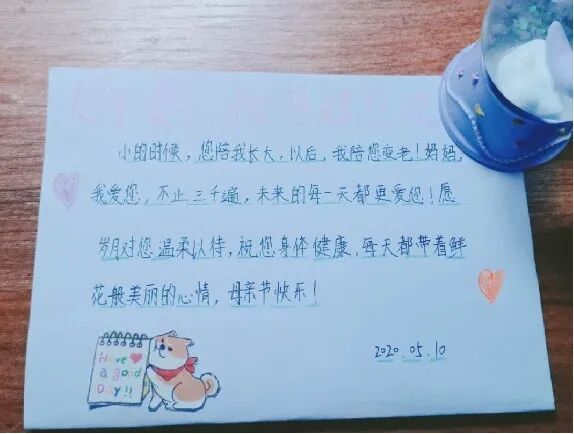 小的时候，您陪我长大，以后，我陪您变老！妈妈，
我爱您，不止三千遍，未来的每一天都更爱您！愿
岁月对您温柔以待，祝您身体健康，每天都带着鲜
花般美丽的心情，母亲节快乐！
2020.05.10
Have
a good
Day!!